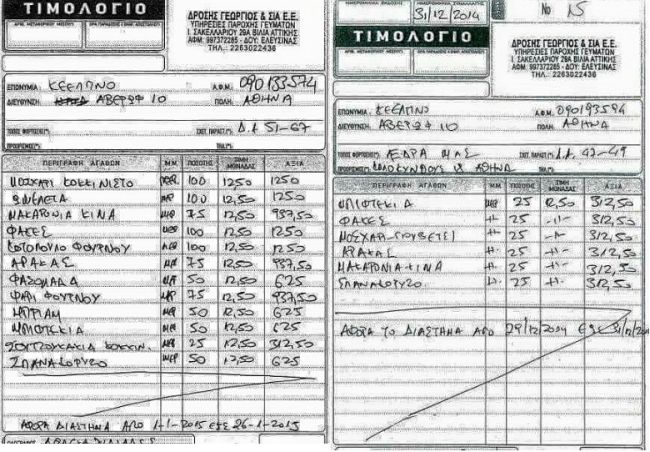 ΤΙΜΟΛΟΓΙΟ
ΔΡΟΣΗΣ ΓΕΩΡΓΙΟΣ & ΣΙΑ Ε.Ε.
ΥΠΗΡΕΣΙΕΣ ΠΑΡΟΧΗΣ ΓΕΥΜΑΤΩΝ
Ι. ΣΑΚΕΛΛΑΡΙΟΥ 29Α ΒΙΛΙΑ ΑΤΤΙΚΗΣ
ΑΦΜ: 997372285 - ΔΟΥ: ΕΛΕΥΣΙΝΑΣ
ΤΗΛ.: 2263022436
ΕΠΩΝΥΜΙΑ ΚΕΕΛΠΝΟ Α.Φ.Μ. 090193594
ΔΙΕΥΘΥΝΣΗ ΑΒΕΡΩΦ 10 ΠΟΛΗ ΑΘΗΝΑ
ΤΟΠΟΣ ΦΟΡΤΩΣΗΣ ΣΧΕΤ. ΠΑΡΑΣΤ. Δ.Α 51-67
ΠΡΟΟΡΙΣΜΟΣ
ΠΕΡΙΓΡΑΦΗ ΑΓΑΘΩΝ Μ.Μ. ΠΟΣΟΤΗΣ ΤΙΜΗ ΜΟΝΑΔΑΣ ΑΞΙΑ
ΜΟΣΧΑΡΙ ΚΟΚΚΙΝΙΣΤΟ ΜΕΡ 100 12,50 1250
ΟΜΕΛΕΤΑ ΜΕΡ 100 12,50 1250
ΜΑΚΑΡΟΝΙΑ ΚΙΜΑ ΜΕΡ 75 12,50 937,50
ΦΑΚΕΣ ΜΕΡ 100 12,50 1250
ΚΟΤΟΠΟΥΛΟ ΦΟΥΡΝΟΥ ΜΕΡ 100 12,50 1250
ΑΡΑΚΑΣ ΜΕΡ 75 12,50 937,50
ΦΑΣΟΛΑΔΑ ΜΕΡ 50 12,50 625
ΨΑΡΙ ΦΟΥΡΝΟΥ ΜΕΡ 75 12,50 937,50
ΜΠΡΙΑΜ ΜΕΡ 50 12,50 625
ΜΠΙΦΤΕΚΙΑ ΜΕΡ 50 12,50 625
ΣΟΥΤΖΟΥΚΑΚΙΑ ΚΟΚΚΙΝ. ΜΕΡ 25 12,50 312,50
ΣΠΑΝΑΚΟΡΥΖΟ ΜΕΡ 50 12,50 625
ΑΦΟΡΑ ΔΙΑΣΤΗΜΑ ΑΠΟ 1-1-2015 ΕΩΣ 26-1-2015
31/12/2014
No 15
ΤΙΜΟΛΟΓΙΟ
ΔΡΟΣΗΣ ΓΕΩΡΓΙΟΣ & ΣΙΑ Ε.Ε.
ΥΠΗΡΕΣΙΕΣ ΠΑΡΟΧΗΣ ΓΕΥΜΑΤΩΝ
Ι. ΣΑΚΕΛΛΑΡΙΟΥ 29Α ΒΙΛΙΑ ΑΤΤΙΚΗΣ
ΑΦΜ: 997372285 - ΔΟΥ: ΕΛΕΥΣΙΝΑΣ
ΤΗΛ.: 2263022436
ΕΠΩΝΥΜΙΑ ΚΕΕΛΠΝΟ Α.Φ.Μ. 090193594
ΔΙΕΥΘΥΝΣΗ ΑΒΕΡΩΦ 10 ΠΟΛΗ ΑΘΗΝΑ
ΤΟΠΟΣ ΦΟΡΤΩΣΗΣ ΕΔΡΑ ΜΑΣ ΣΧΕΤ. ΠΑΡΑΣΤ. Δ.Α. 42-49
ΠΡΟΟΡΙΣΜΟΣ ΑΘΗΝΑ
ΠΕΡΙΓΡΑΦΗ ΑΓΑΘΩΝ Μ.Μ. ΠΟΣΟΤΗΣ ΤΙΜΗ ΜΟΝΑΔΑΣ ΑΞΙΑ
ΜΠΙΦΤΕΚΙΑ ΜΕΡ 25 12,50 312,50
ΦΑΚΕΣ -//- 25 -//- 312,50
ΜΟΣΧΑΡΙ-ΓΙΟΥΒΕΤΣΙ -//- 25 -//- 312,50
ΑΡΑΚΑΣ -//- 25 -//- 312,50
ΜΑΚΑΡΟΝΙΑ-ΚΙΜΑ -//- 25 -//- 312,50
ΣΠΑΝΑΚΟΡΥΖΟ -//- 25 -//- 312,50
ΑΦΟΡΑ ΤΟ ΔΙΑΣΤΗΜΑ ΑΠΟ 29/12/2014 ΕΩΣ 31/12/